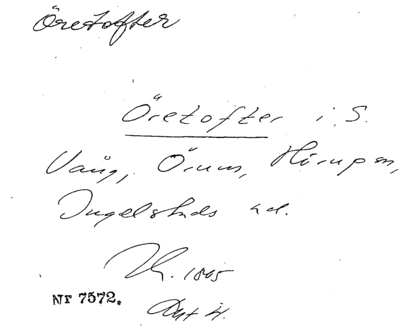 Öretofter
Öretofter i S.
Vång, Örum, Hörups sn,
Ingelstads hd.
1885
Nr 7572.